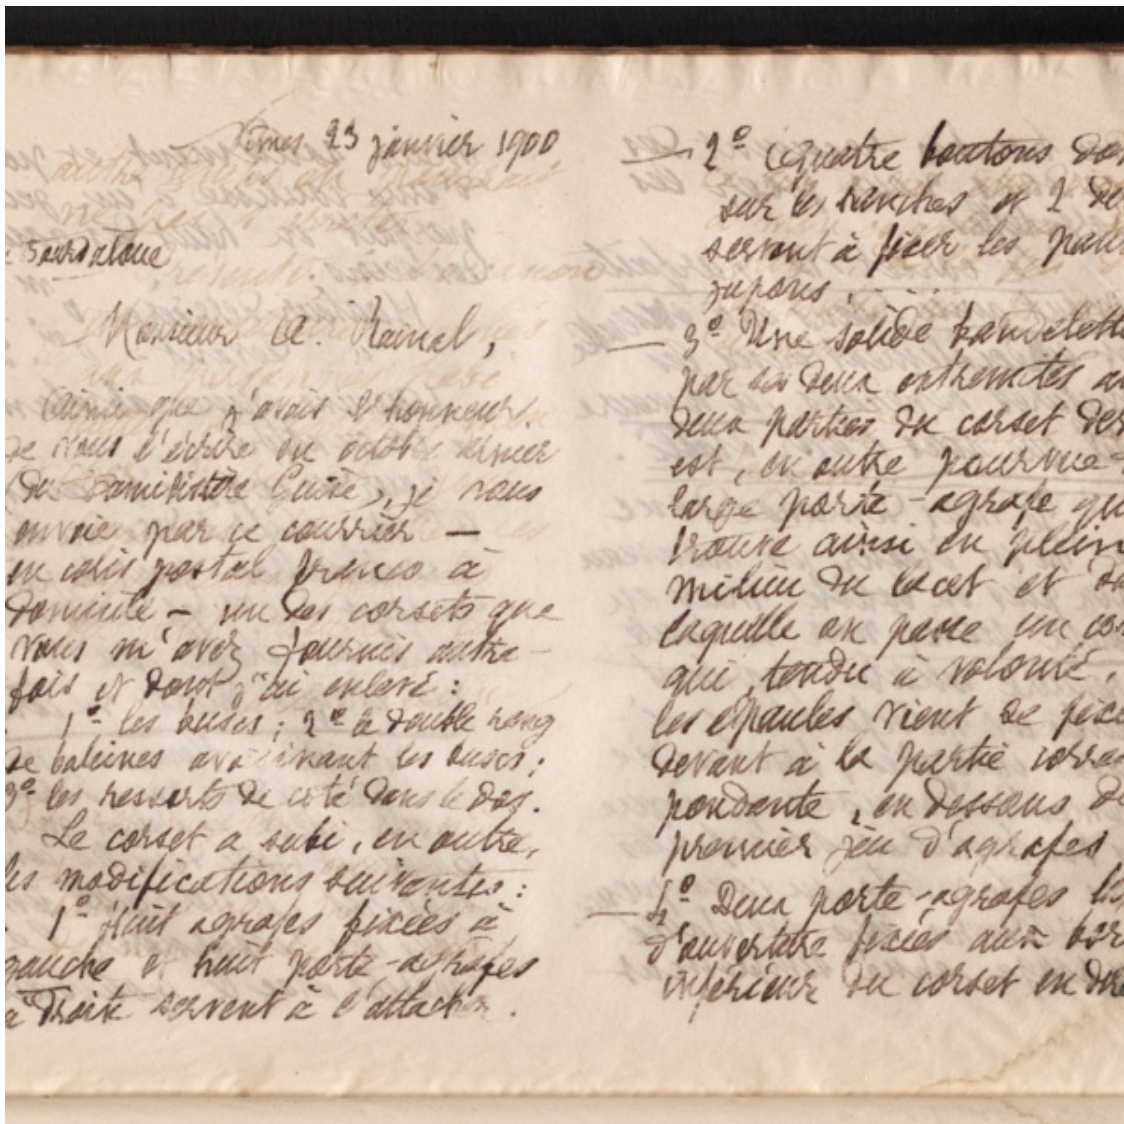 Nîmes 23 janvier 1900
Bourdaloue
Monsieur A. Rainal,
Ainsi que j'avais l'honneur
de vous l'écrire en octobre dernier
(du Familistère Guise), je vous
envoie par ce courrier —
en colis postal franco à
domicile — un des corsets que
vous m'avez fournis autre-
fois et dont j'ai enlevé :
1º les buscs ; 2º le double rang
de baleines avoisinant les buscs ;
3º les ressorts de côté dans le dos.
Le corset a subi, en outre,
les modifications suivantes :
1º Huit agrafes fixées à
gauche et huit porte-agrafes
à droite servent à l'attacher.
— 2º Quatre boutons dos
sur les hanches et 2 de
servant à fixer les pan
jupons.
— 3º Une solide bandelette
par ses deux extrémités au
deux parties du corset der
est, en outre pourvue
large porte-agrafe qu
trouve ainsi en plein
milieu du lacet et da
laquelle on passe un cor
qui, tendu à volonté,
les épaules vient se fixe
devant à la partie corres
pondante, en dessous de
premier jeu d'agrafes
— 4º Deux porte-agrafes
d'ouverture fixées aux bor
inférieur du corset en